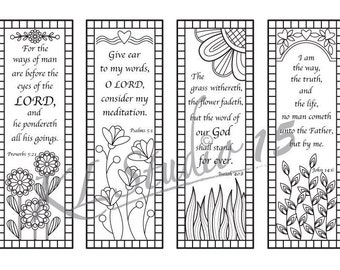 For the
ways of man
are before the
eyes of the
LORD,
and he
pondereth
all his goings.
Proverbs 5:21
Give ear
to my words,
O LORD,
consider my
meditation.
Psalms 5:1
The
grass withereth,
the flower fadeth,
but the word of
our God
shall stand
for ever.
Isaiah 40:8
I am
the way,
the truth,
and
the life,
no man cometh
unto the Father,
but by me.
John 14:6